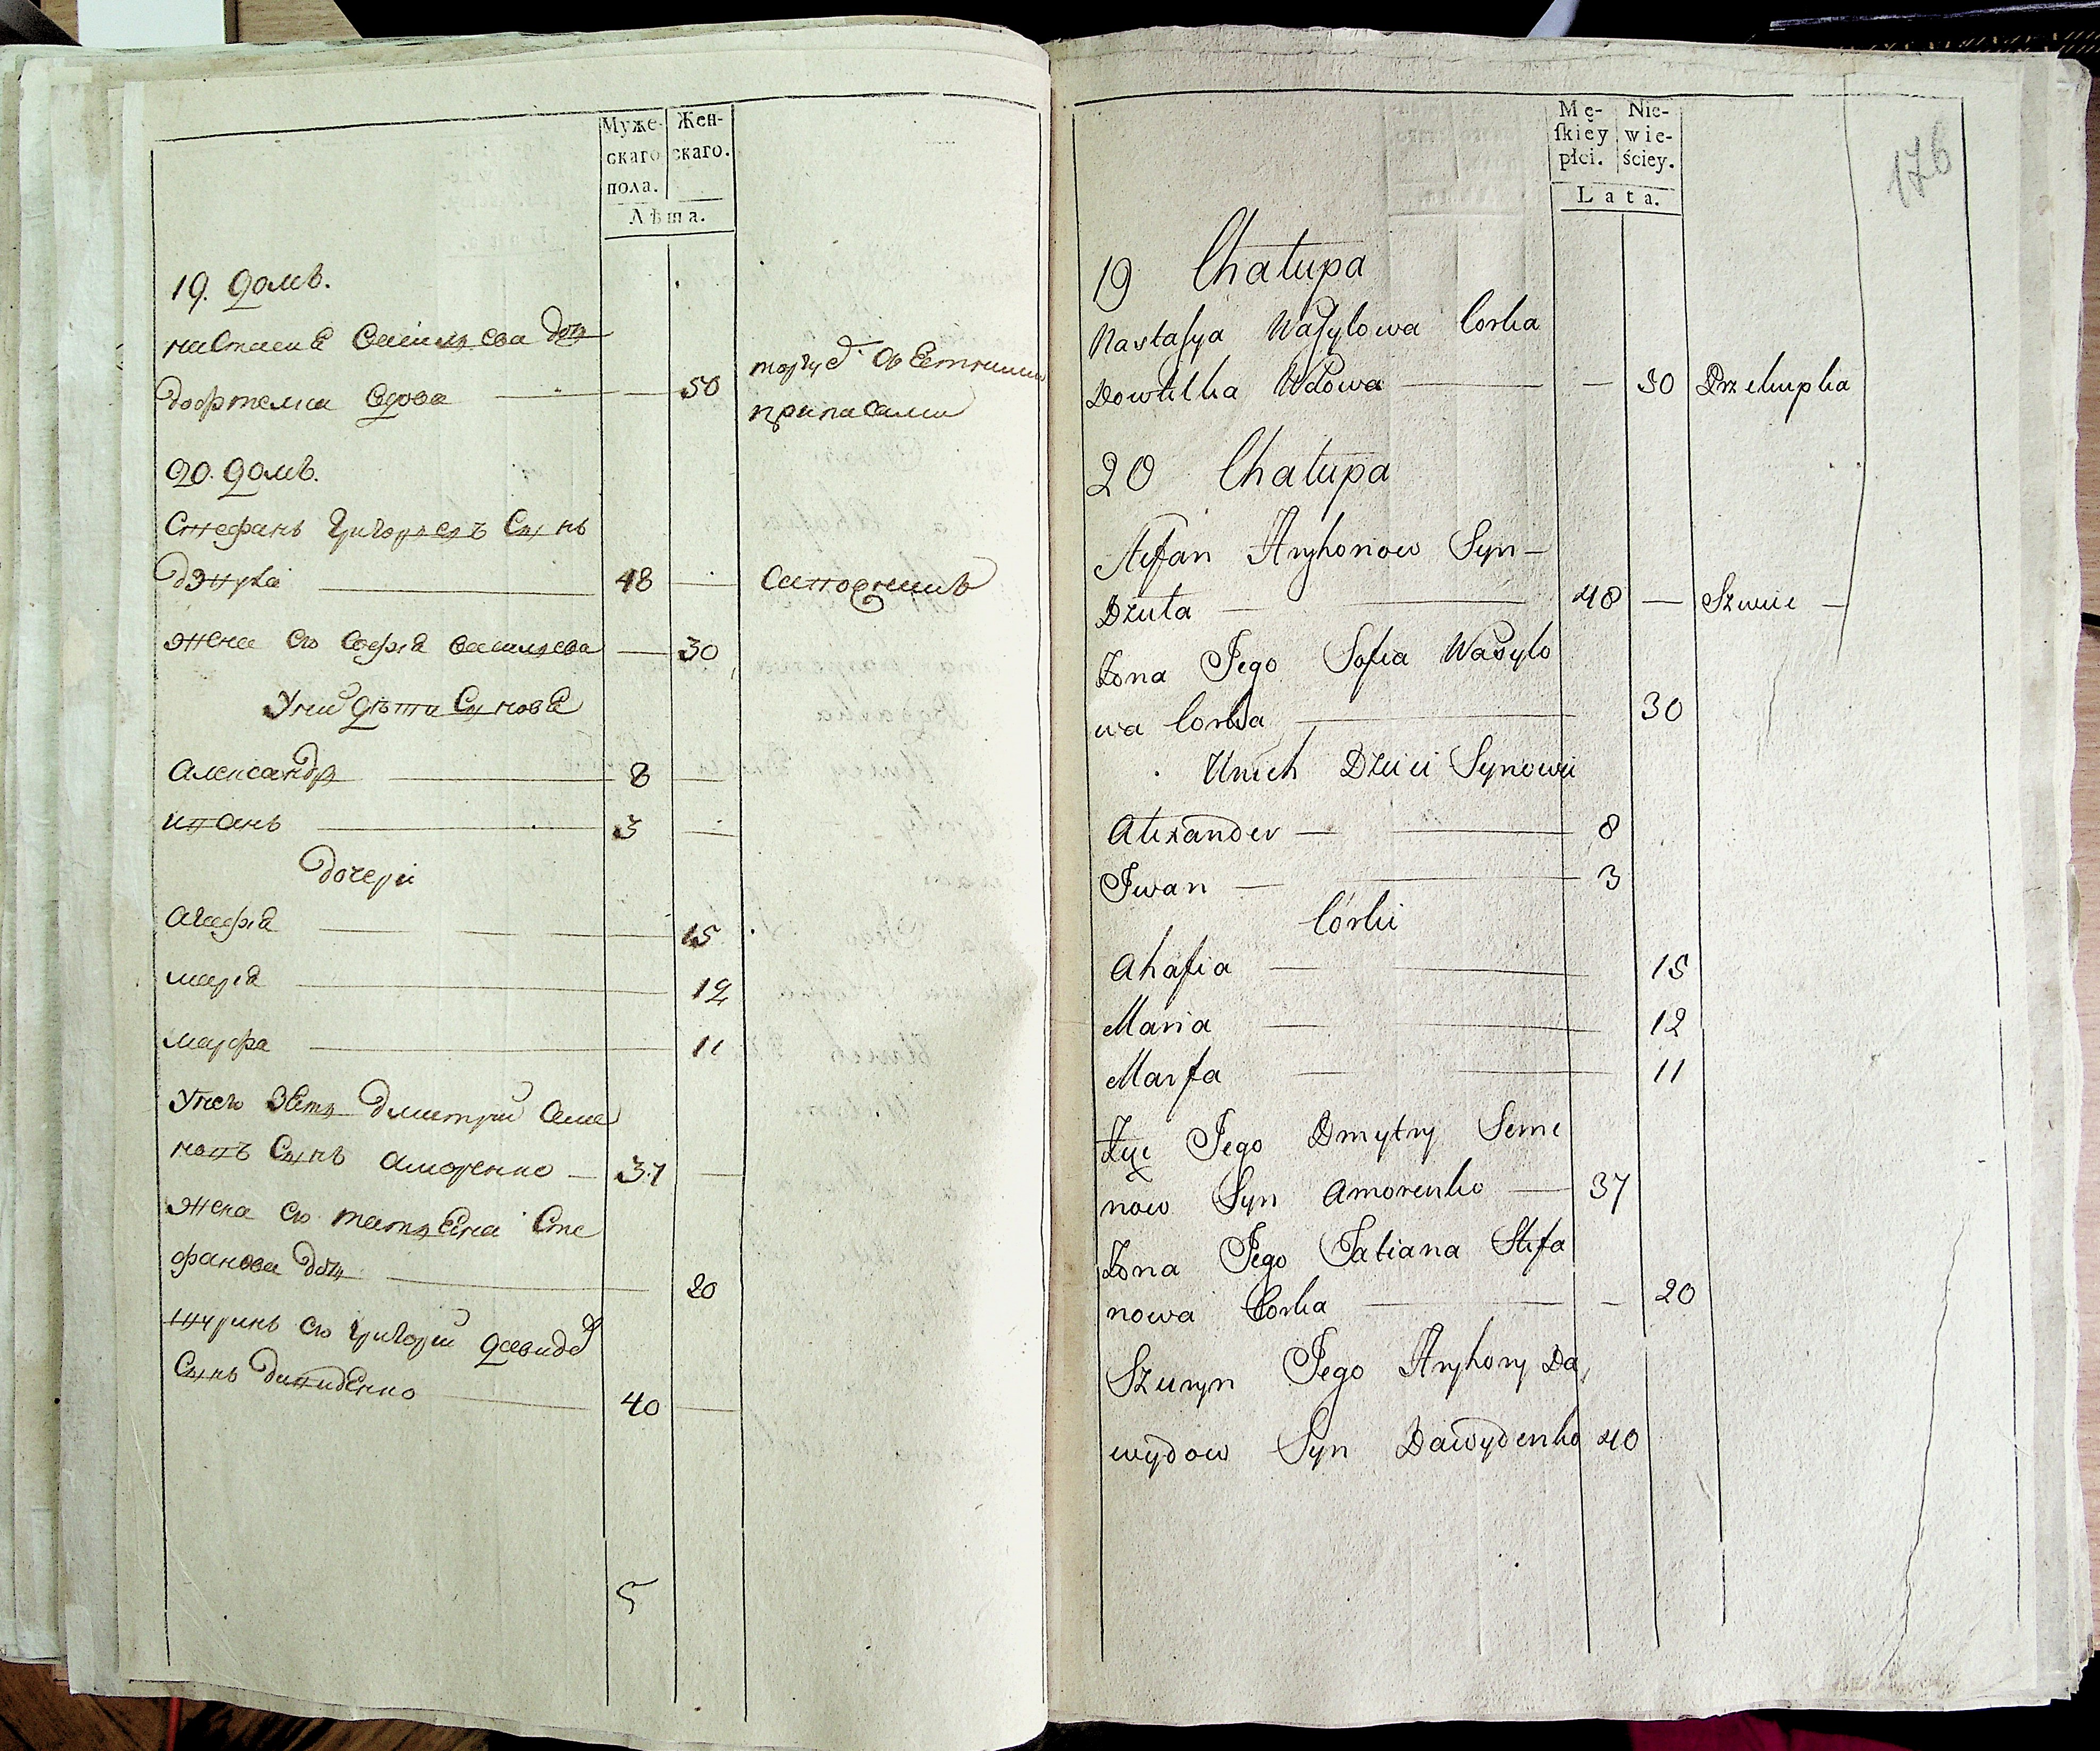 Муже-
скаго
пола.
Жен-
скаго.
Лѣта.
19. домъ.
настасиѣ василева доч
довтелка вдова — 50
торгуе съестними
припасами
20. домъ.
Стефанъ григорьевъ Сынъ
дзюта — 48 — сапожникъ
жена его Софiѣ василева — 30
У них дѣти Синовѣ
александръ — 8 —
иванъ — 3 —
дочери
агафiѣ — 15
марiѣ — 12
марфа — 11
У него зять дмитрий Семе
новъ Сынъ аморенко — 37 —
жена его татьяна Сте
фанова доч — 20
шуринъ его григорий давидо
Сынъ давиденко — 40 —
5
Mę-
skiey
płci.
Nie-
wie-
ściey.
Lata.
176
19 Chałupa
Nastasya Wasylowa Corka
Dowtelka Wdowa — — 50 Przekupka
20 Chałupa
Stefan Hryhorow Syn —
Dzuta — 48 — Szwiec —
Żona Jego Sofia Wasylo
wa Corka — 30
U nich Dzieci Synowie
Alexander — 8
Iwan — 3
Córki
Ahafia — 15
Maria — 12
Marfa — 11
Zięć Jego Dmytry Seme
now Syn Amorenko — 37
Żona Jego Tatiana Stefa
nowa Corka — — 20
Szuryn Jego Hryhory Da,
wydow Syn Dawydenko 40